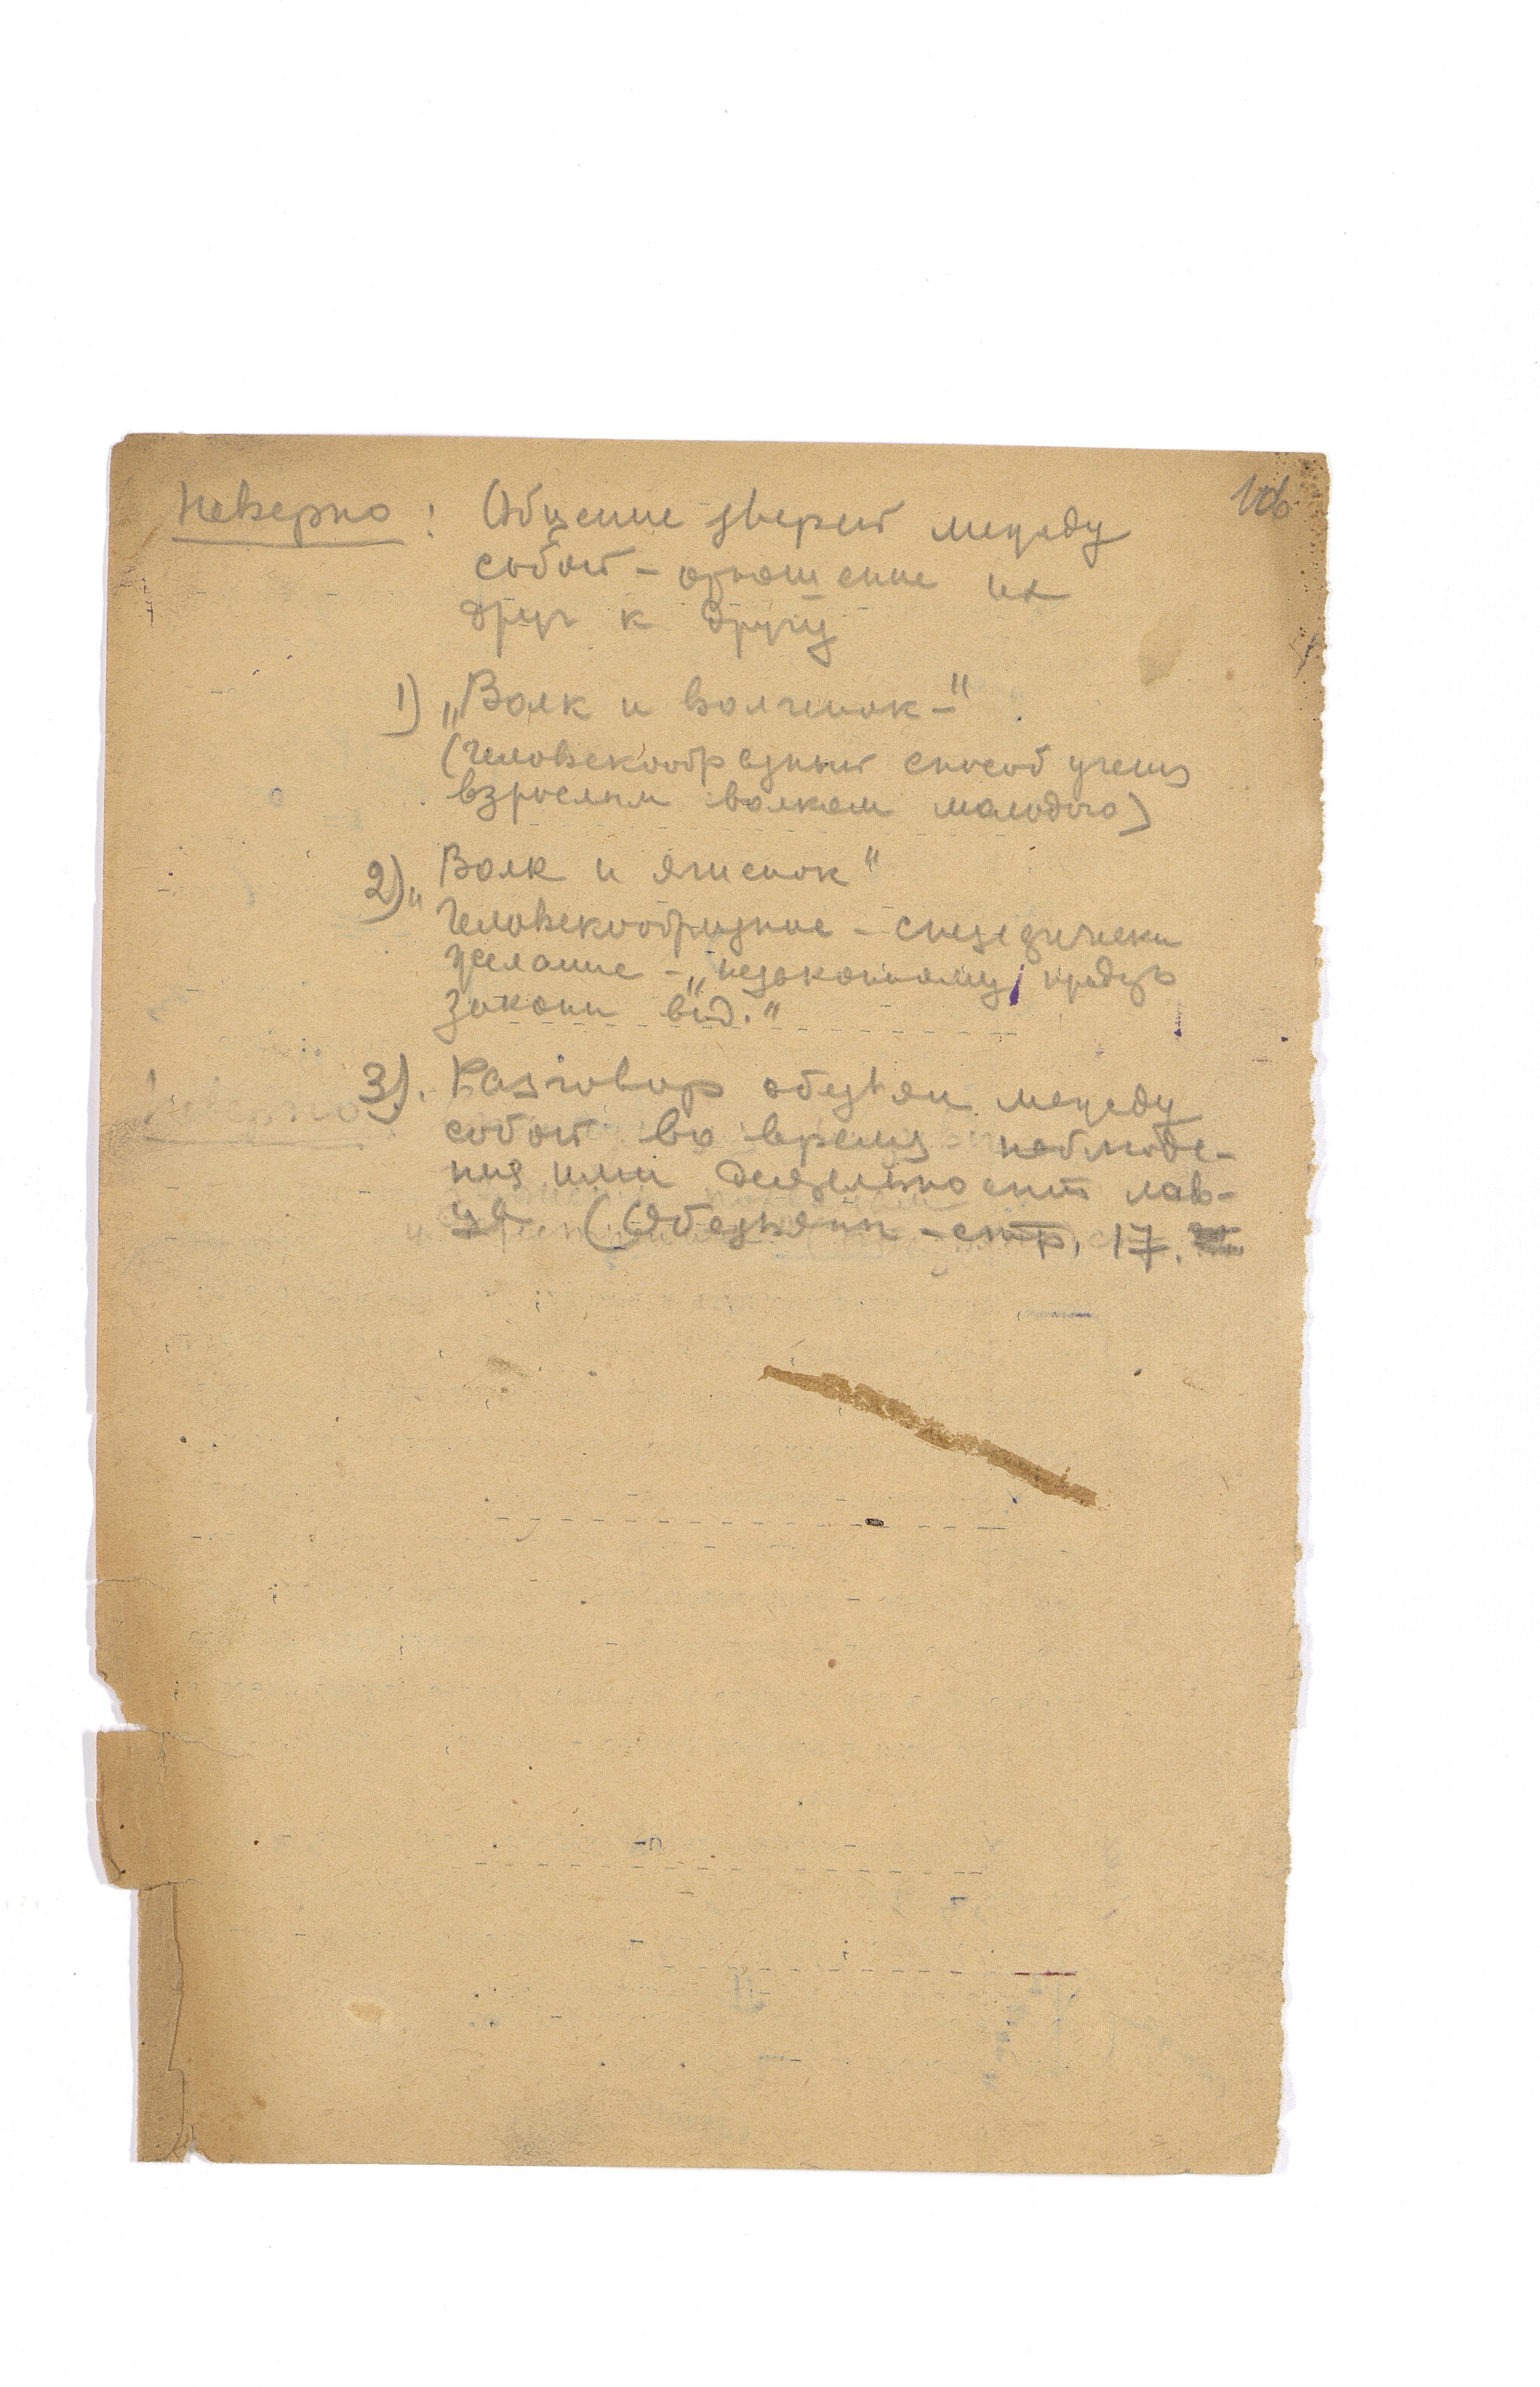 106
Неверно: Общение зверей между
собой – отношение их
друг к другу
1) „Волк и волченок –"
(Человекообразный способ учения
взрослым волком молодого)
2) „Волк и ягненок"
Человекообразное – специфически
желание – „незаконному придать
законн вид."
3). Разговор обезьян между
собой во время наблюде-
ния ими деятельности лов-
ца (Обезьяны – стр. 17.